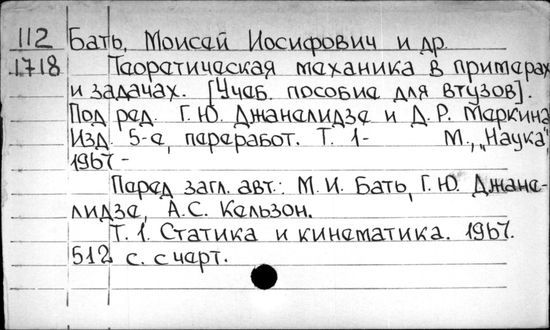 112 Бать, Моисей Иосифович и др.
1718 Теоретическая механика в примерах
и задачах. [Учеб. пособие для втузов].
Под ред. Г.Ю. Джанелидзе и Д.Р. Меркина
Изд. 5-е, переработ. Т. 1- М., „Наука",
1967 -
Перед загл. авт.: М.И. Бать, Г.Ю. Джане-
лидзе, А.С. Кельзон.
Т. 1. Статика и кинематика. 1967.
512 с. с черт.